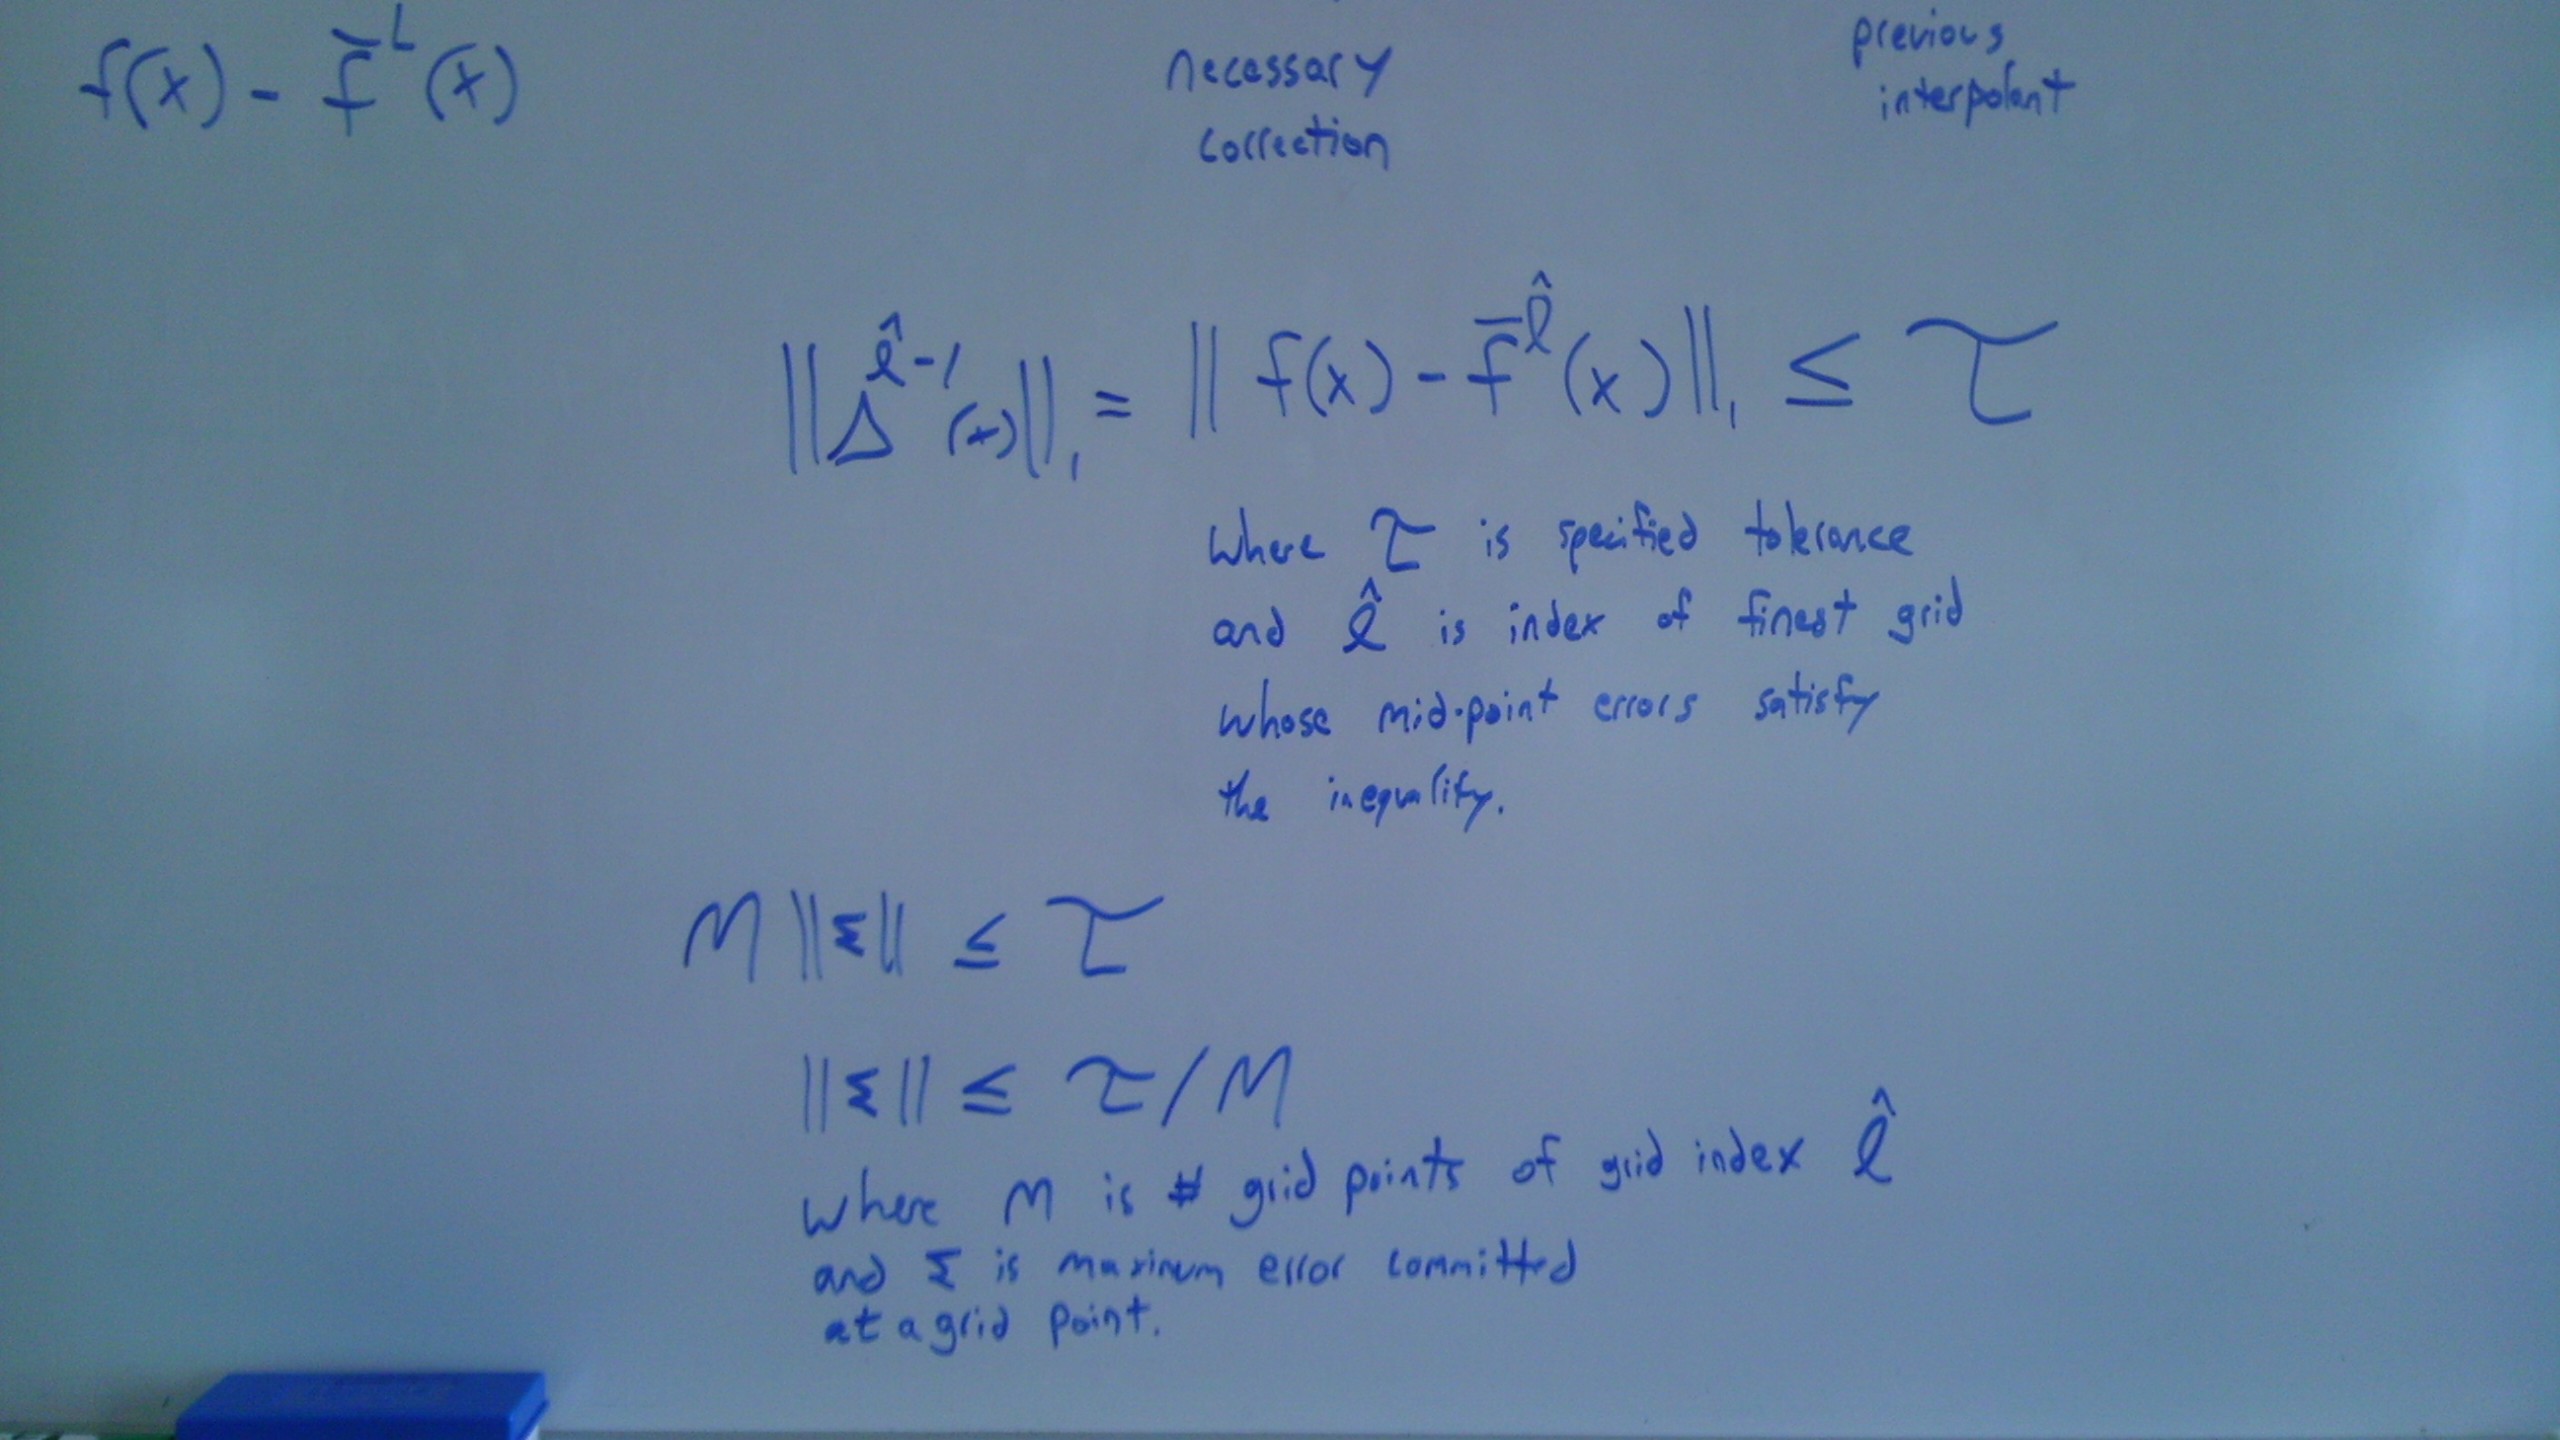 f(x) - f̄ᴸ(x)
necessary
correction
previous
interpolant
||Δ^(l̂-1)(x)||₁ = || f(x) - f̄^l̂(x)||₁ ≤ τ
where τ is specified tolerance
and l̂ is index of finest grid
whose mid-point errors satisfy
the inequality.
M ||Σ|| ≤ τ
||Σ|| ≤ τ/M
where M is # grid points of grid index l̂
and Σ is maximum error committed
at a grid point.